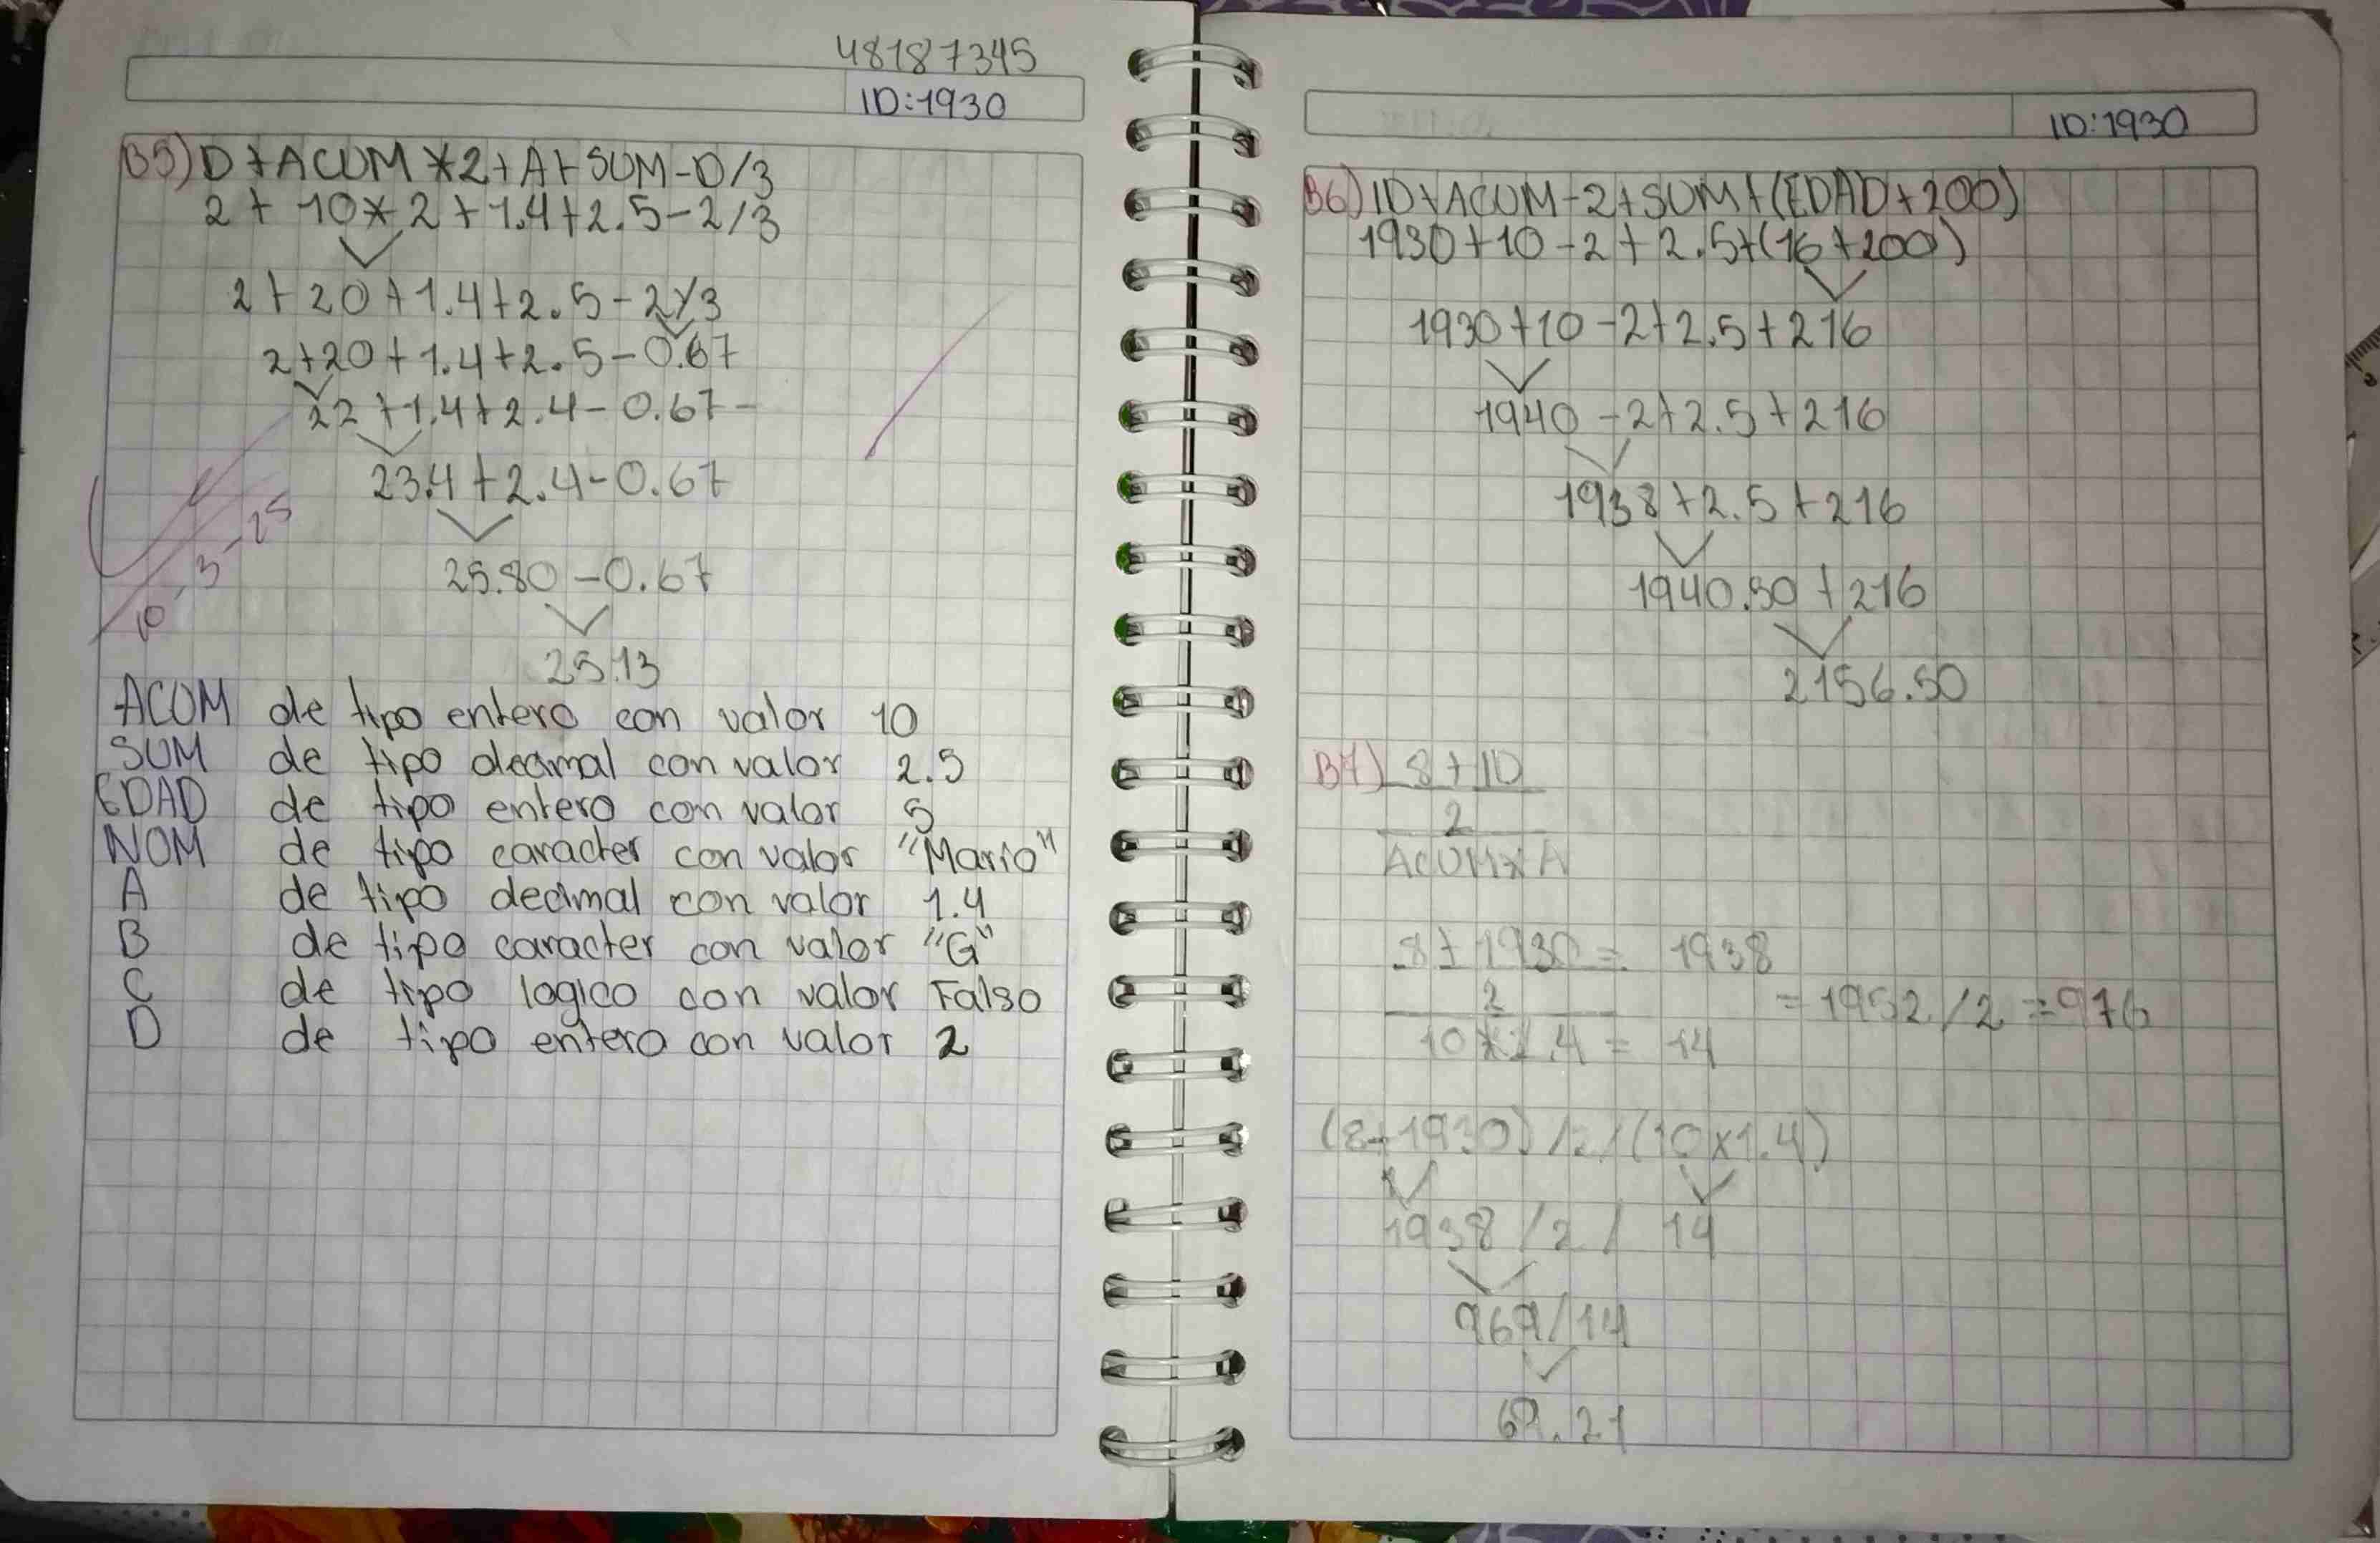 48187345
ID:1930
B5) D+ACUM*2+A+SUM-D/3
2+10*2+1.4+2.5-2/3
2+20+1.4+2.5-2/3
2+20+1.4+2.5-0.67
22+1.4+2.4-0.67-
23.4+2.4-0.67
25.80-0.67
25.13
10-3-25
ACOM de tipo entero con valor 10
SUM de tipo decimal con valor 2.5
EDAD de tipo entero con valor 5
NOM de tipo caracter con valor "Mario"
A de tipo decimal con valor 1.4
B de tipo caracter con valor "G"
C de tipo logico con valor Falso
D de tipo entero con valor 2
ID:1930
B6) ID+ACUM-2+SUM+(EDAD+200)
1930+10-2+2.5+(16+200)
1930+10-2+2.5+216
1940-2+2.5+216
1938+2.5+216
1940.50+216
2156.50
B7) 8+ID
2
ACUM*A
8+1930= 1938
2
=1952/2=976
10*1.4= 14
(8+1930)/2/(10x1.4)
1938/2/ 14
969/14
69.21